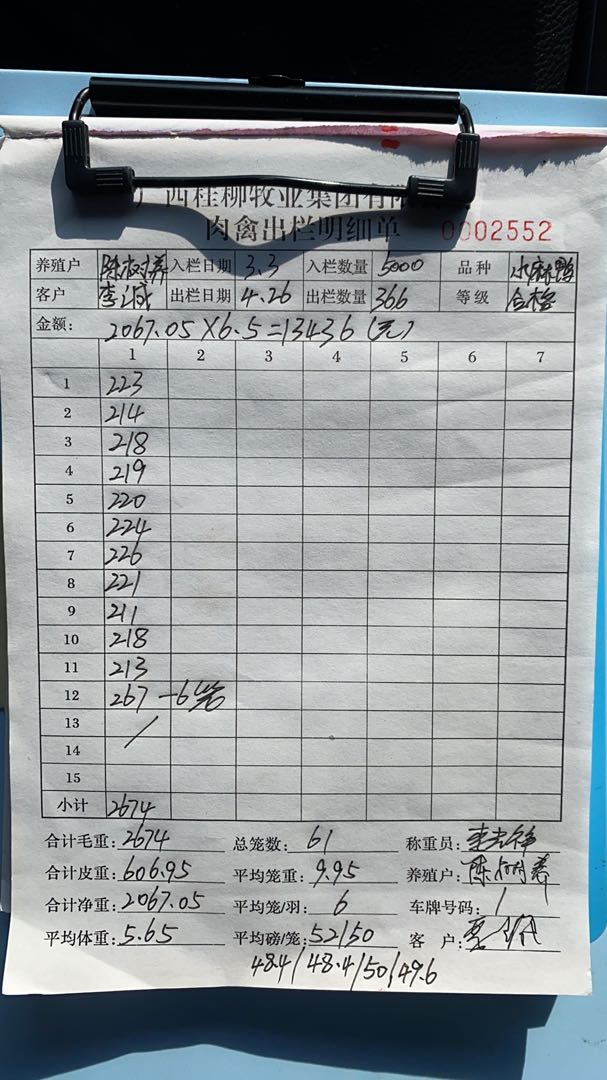 广西桂柳牧业集团有限
肉禽出栏明细单 0002552
养殖户 陈树养 入栏日期 3.3 入栏数量 5000 品种 水麻鸭
客户 出栏日期 4.26 出栏数量 366 等级 合格
金额: 2067.05×6.5=13436(元)
1 2 3 4 5 6 7
1 223
2 214
3 218
4 219
5 220
6 224
7 226
8 221
9 211
10 218
11 213
12 267 -6笼
13 /
14
15
小计 2674
合计毛重: 2674 总笼数: 61 称重员:
合计皮重: 606.95 平均笼重: 9.95 养殖户: 陈树养
合计净重: 2067.05 平均笼/羽: 6 车牌号码: 1
平均体重: 5.65 平均磅/笼: 52/50 客 户:
48.4/48.4/50/49.6